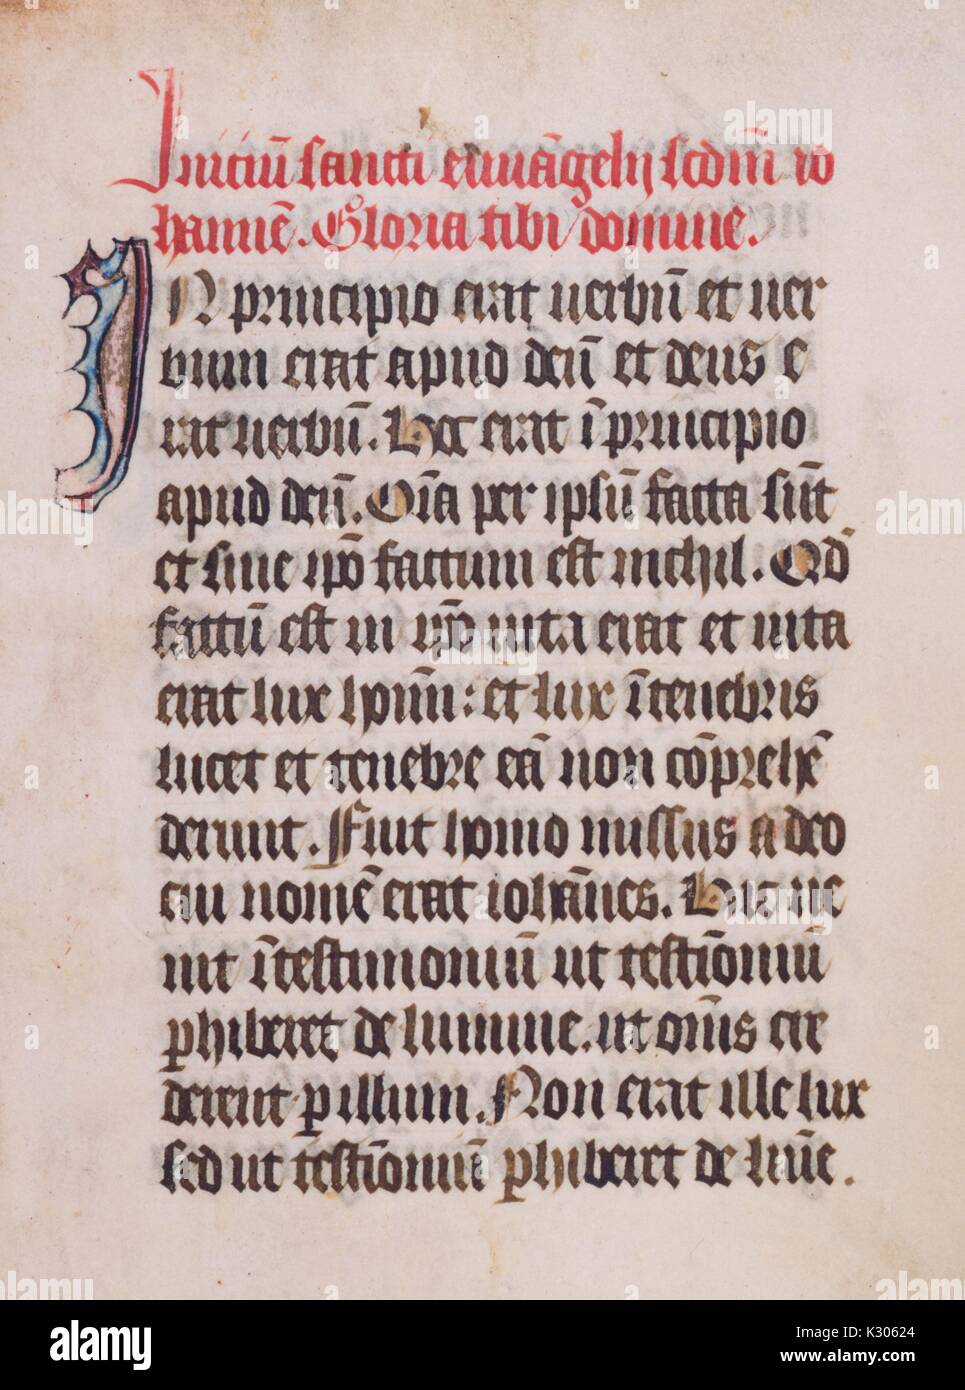 Iniciū sancti ewāgelij scdm̄ io
hannē. Gloria tibi domine.
IN principio erat uerbū et uer
bum erat apud deū et deus e
rat uerbū. Hoc erat ī principio
apud deū. Oīa per ipsū facta sūt
et sine ipō factum est nichil. Qd̄
factū est in ipō uita erat et uita
erat lux hoīm̄: et lux ī tenebris
lucet et tenebre eā non cōprehē
derunt. Fuit homo missus a deo
cui nomē erat iohānes. Hic ue
nit ī testimoniū ut testīoniū
ꝑhiberet de lumine. ut om̄is cre
derent ꝑ illum. Non erat ille lux
sed ut testīoniū ꝑhiberet de lūīe.
alamy
a
alamy
Image ID: K30624
www.alamy.com